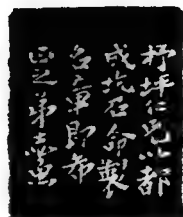 抒坪仁兄以都
成坑石命製
名章即希
正之弟士嵐